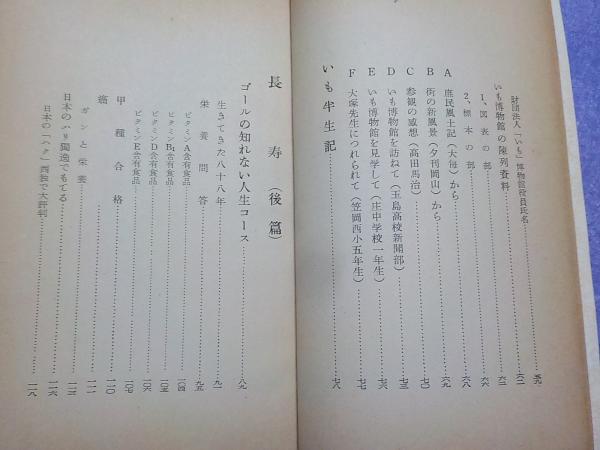 財団法人「いも」博物館役員氏名……五九
いも博物館の陳列資料……六二
1、図表の部……六六
2、標本の部……六八
A 庶民風土記(大毎)から……六九
B 街の新風景(夕刊岡山)から……七〇
C 参観の感想(高田馬治)……七二
D いも博物館を訪ねて(玉島高校新聞部)……七三
E いも博物館を見学して(庄中学校一年生)……七六
F 大塚先生につれられて(笠岡西小五年生)……七七
いも半生記……七八
長寿(後篇)
ゴールの知れない人生コース……八九
生きてきた八十八年……九一
栄養問答……九五
ビタミンA含有食品……一〇四
ビタミンB₁含有食品……一〇五
ビタミンD含有食品……一〇六
ビタミンE含有食品……一〇七
甲種合格……一一〇
癌……一一一
ガンと栄養……一一三
日本のハリ獨逸でもてる……一一六
日本の「ハク」西独で大評判……一一八